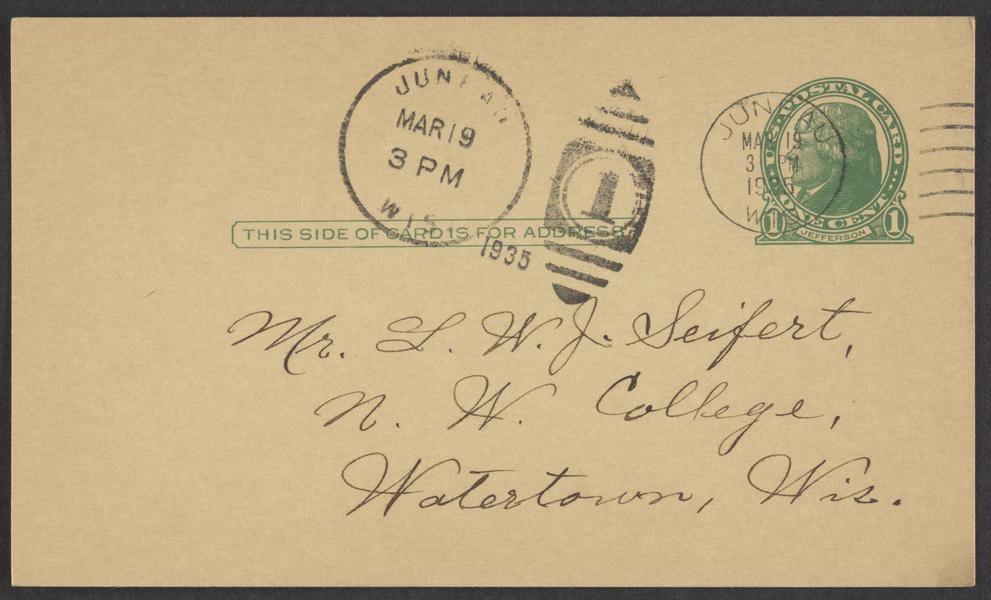 JUNEAU
MAR 19
3 PM
WIS
1935
1
JUNEAU
MAR 19
3 PM
1935
WIS
U·S·POSTAL CARD
ONE CENT
1 1
JEFFERSON
THIS SIDE OF CARD IS FOR ADDRESS
Mr. L. W. J. Seifert,
N. W. College,
Watertown, Wis.